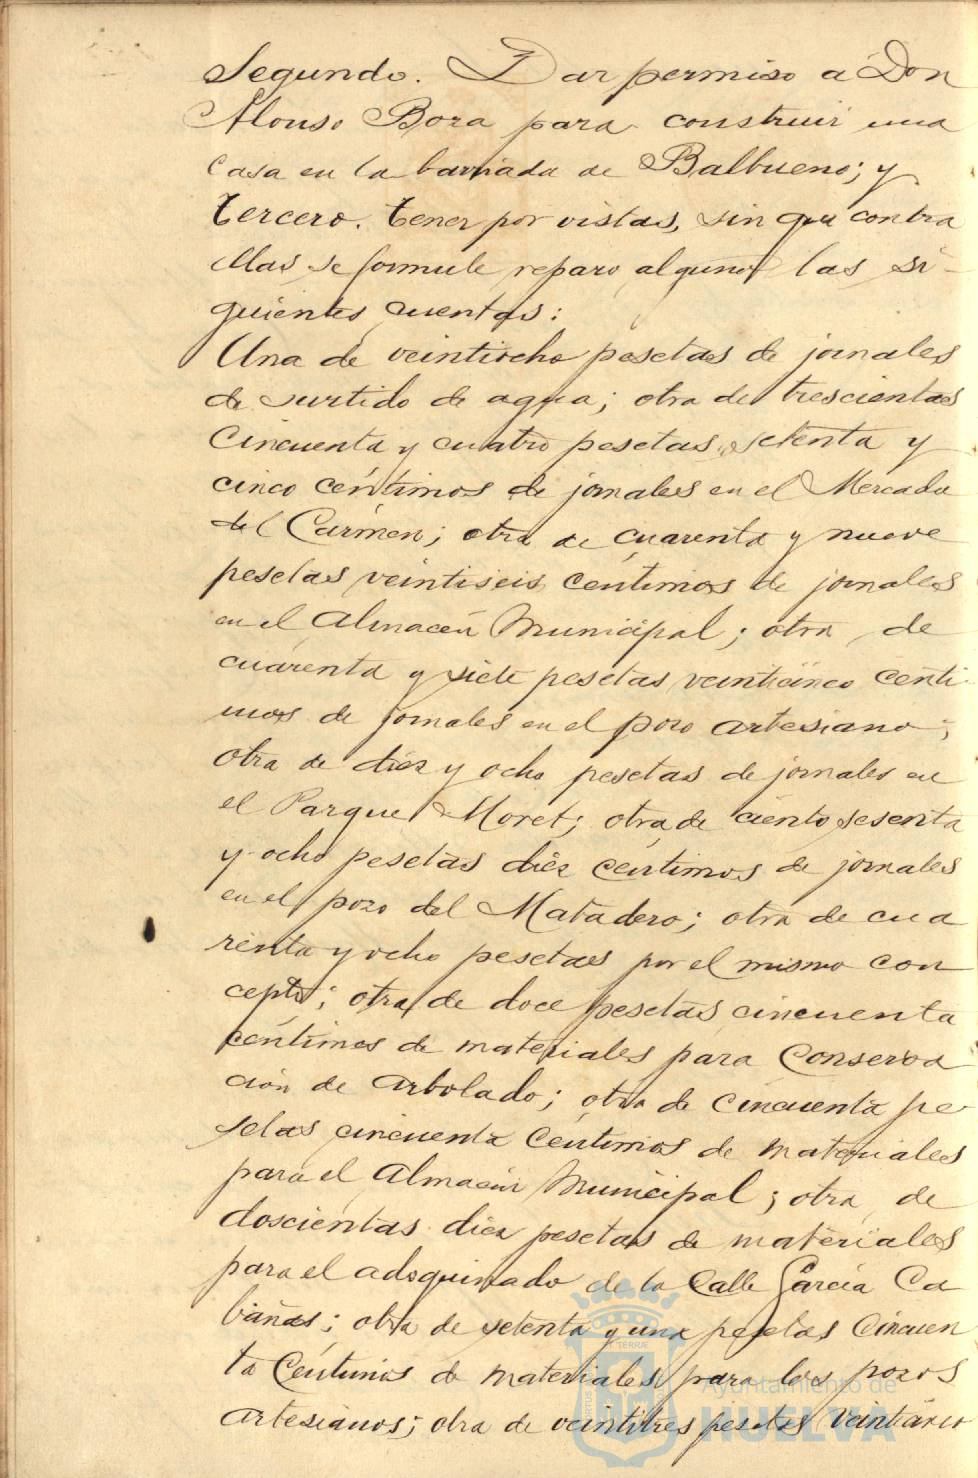 Segundo. Dar permiso á Don
Alonso Bora para construir una
casa en la barriada de Balbueno; y
Tercero. Tener por vistas, sin que contra
ellas se formule reparo alguno las si-
guientes cuentas:
Una de veintiocho pesetas de jornales
de surtido de agua; otra de trescientas
cincuenta y cuatro pesetas setenta y
cinco céntimos de jornales en el Mercado
del Cármen; otra de cuarenta y nueve
pesetas veintiseis céntimos de jornales
en el Almacén Municipal; otra de
cuarenta y siete pesetas veinticinco cénti-
mos de jornales en el pozo artesiano;
otra de diez y ocho pesetas de jornales en
el Parque Moret; otra de ciento sesenta
y ocho pesetas diez céntimos de jornales
en el pozo del Matadero; otra de cua
renta y ocho pesetas por el mismo con
cepto; otra de doce pesetas cincuenta
céntimos de materiales para conserva
ción de arbolado; otra de cincuenta pe-
setas cincuenta céntimos de materiales
para el Almacén Municipal; otra de
doscientas diez pesetas de materiales
para el adoquinado de la Calle García Ca
bañas; otra de setenta y una pesetas cincuen
ta céntimos de materiales para los pozos
artesianos; otra de veintitres pesetas veinticinco
Ayuntamiento de
HUELVA